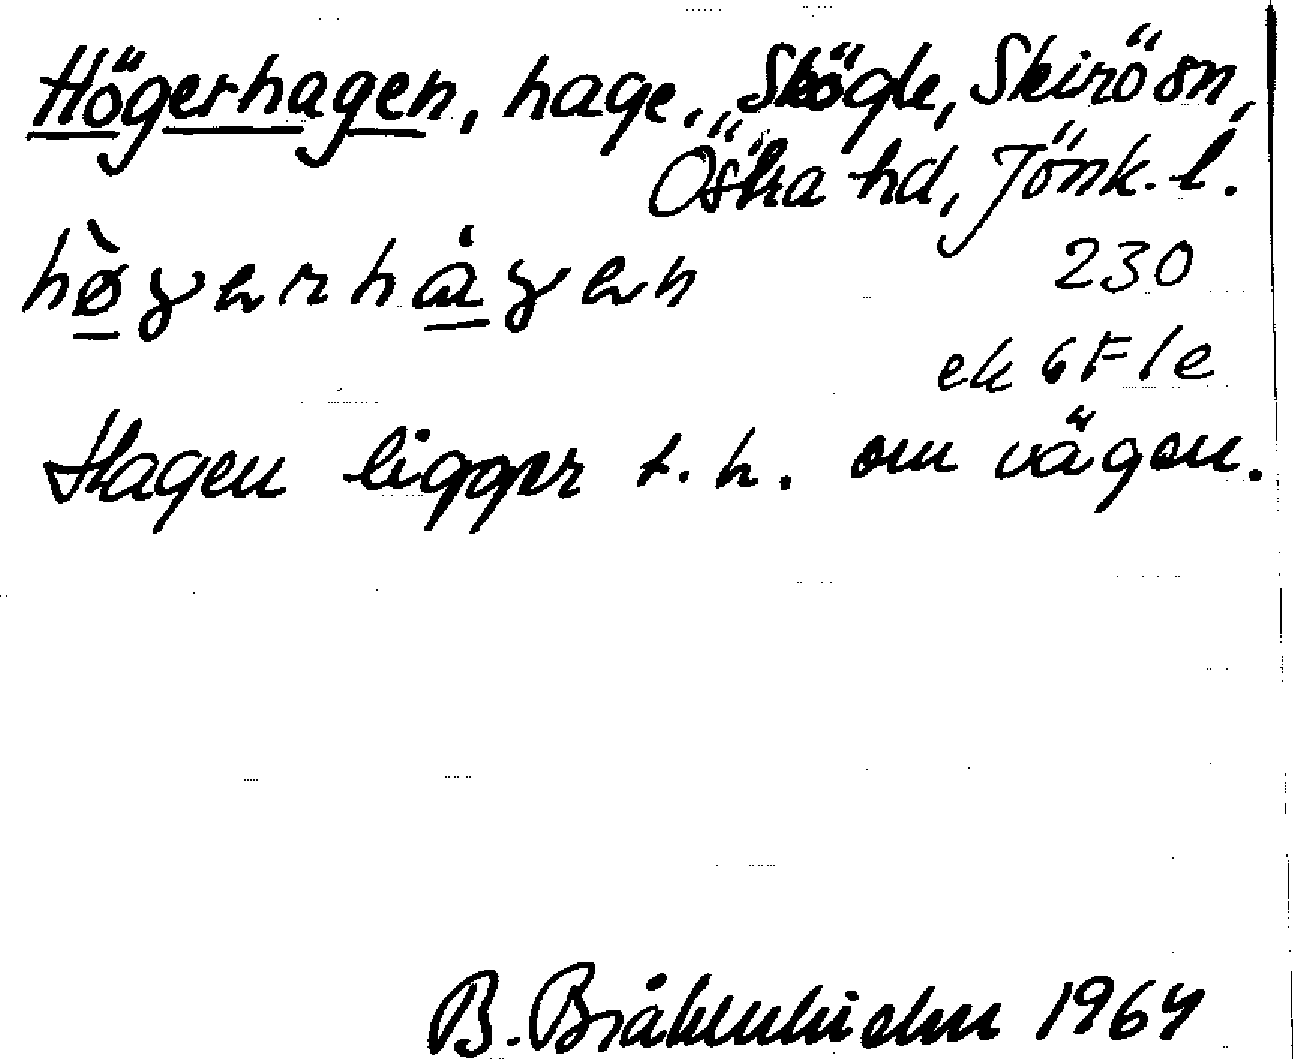 Högerhagen, hage, Skögle, Skirö sn,
Östra hd, Jönk. l.
hø̀gerhågen
230
ek 6F 1e
Hagen ligger t.h. om vägen.
B. 1964